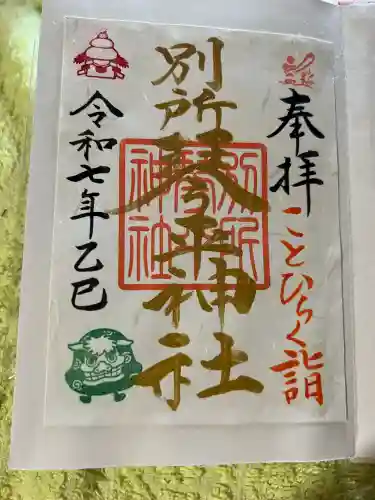 奉拝
ことひらく詣
別所琴平神社
別所琴平神社
令和七年乙巳